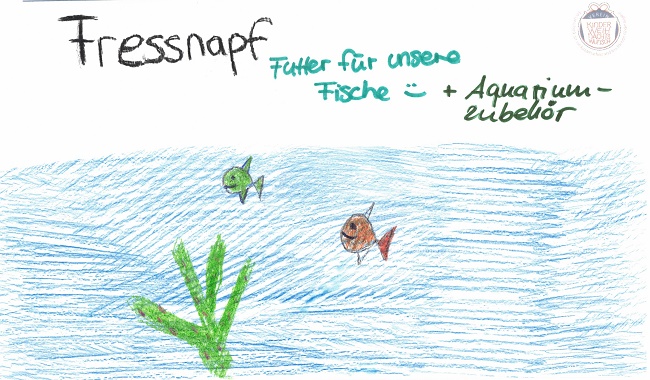 Fressnapf
Futter für unsere
Fische :) + Aquarium-
zubehör
KINDER